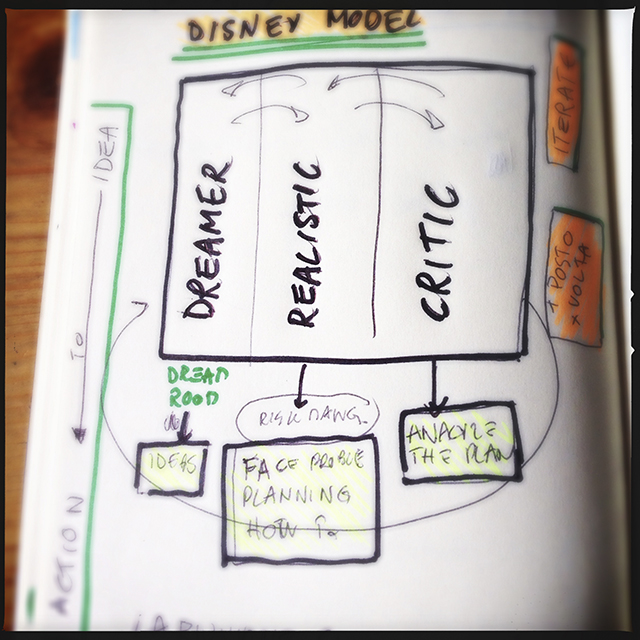 DISNEY MODEL
IDEA
TO
ACTION
DREAMER
REALISTIC
CRITIC
ITERATE
1 POSTO
x VOLTA
DREAM
ROOM
IDEAS
RISK
FACE PROBLE
PLANNING
HOW TO
ANALYZE
THE PLAN